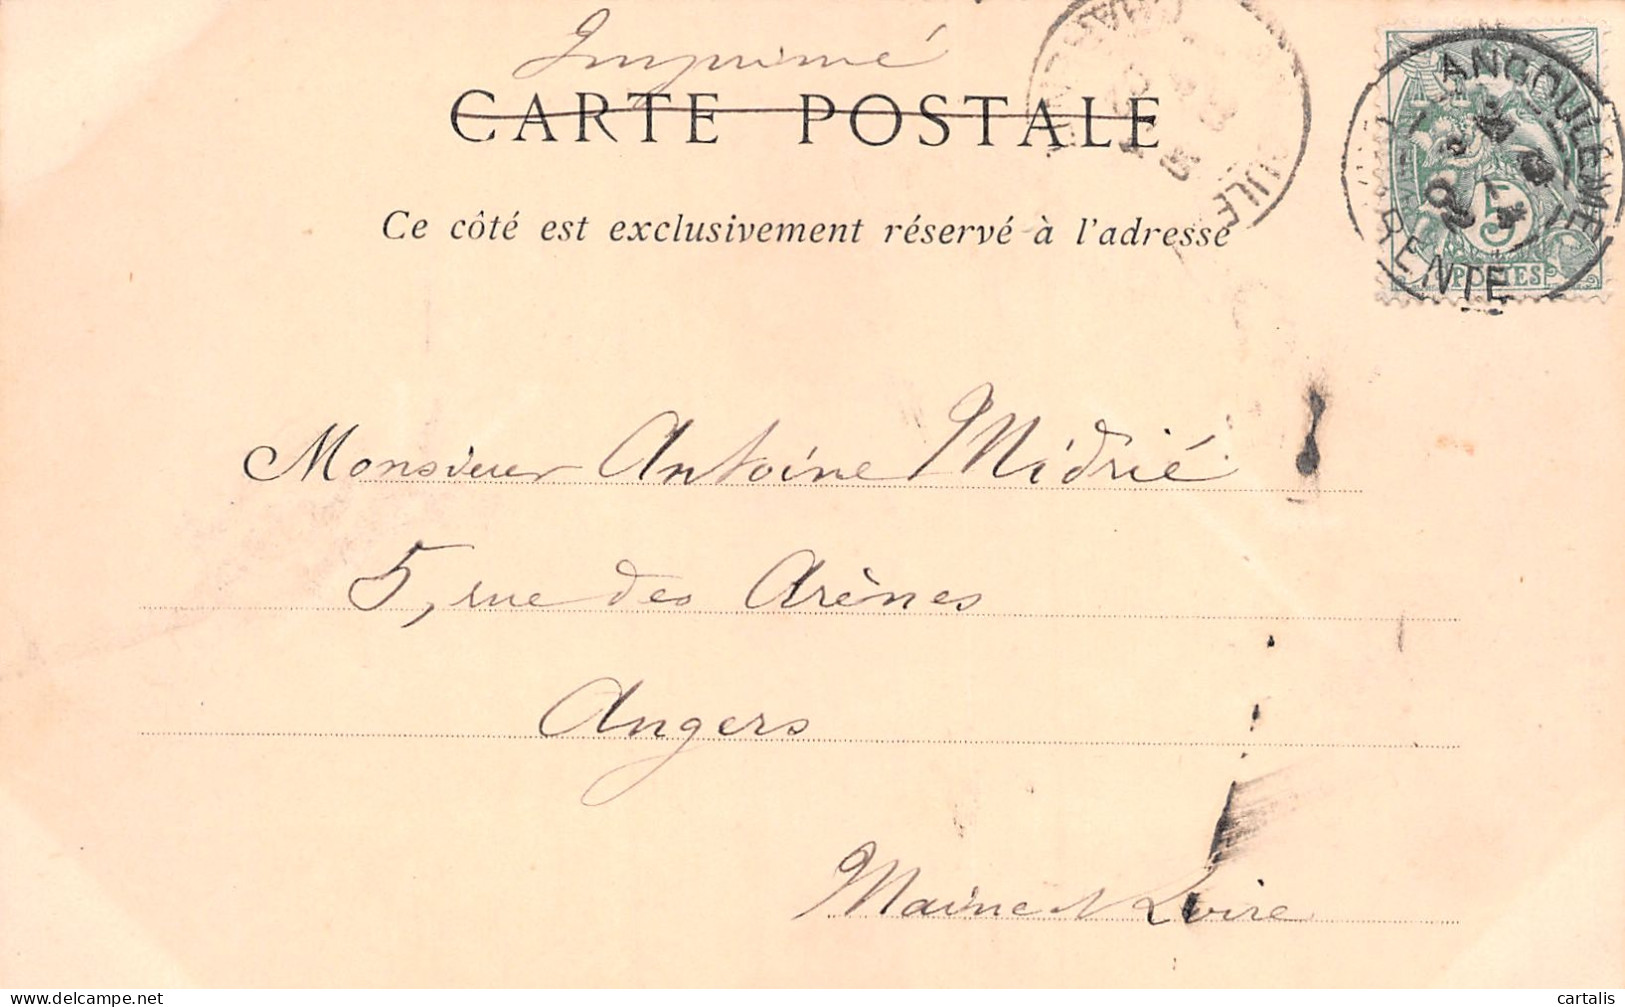 Imprimé
CARTE POSTALE
Ce côté est exclusivement réservé à l'adresse
ANGOULÊME
RENTE
5
POSTES
Monsieur Antoine Midrié
5, rue des Arènes
Angers
Maine et Loire
delcampe.net
cartalis